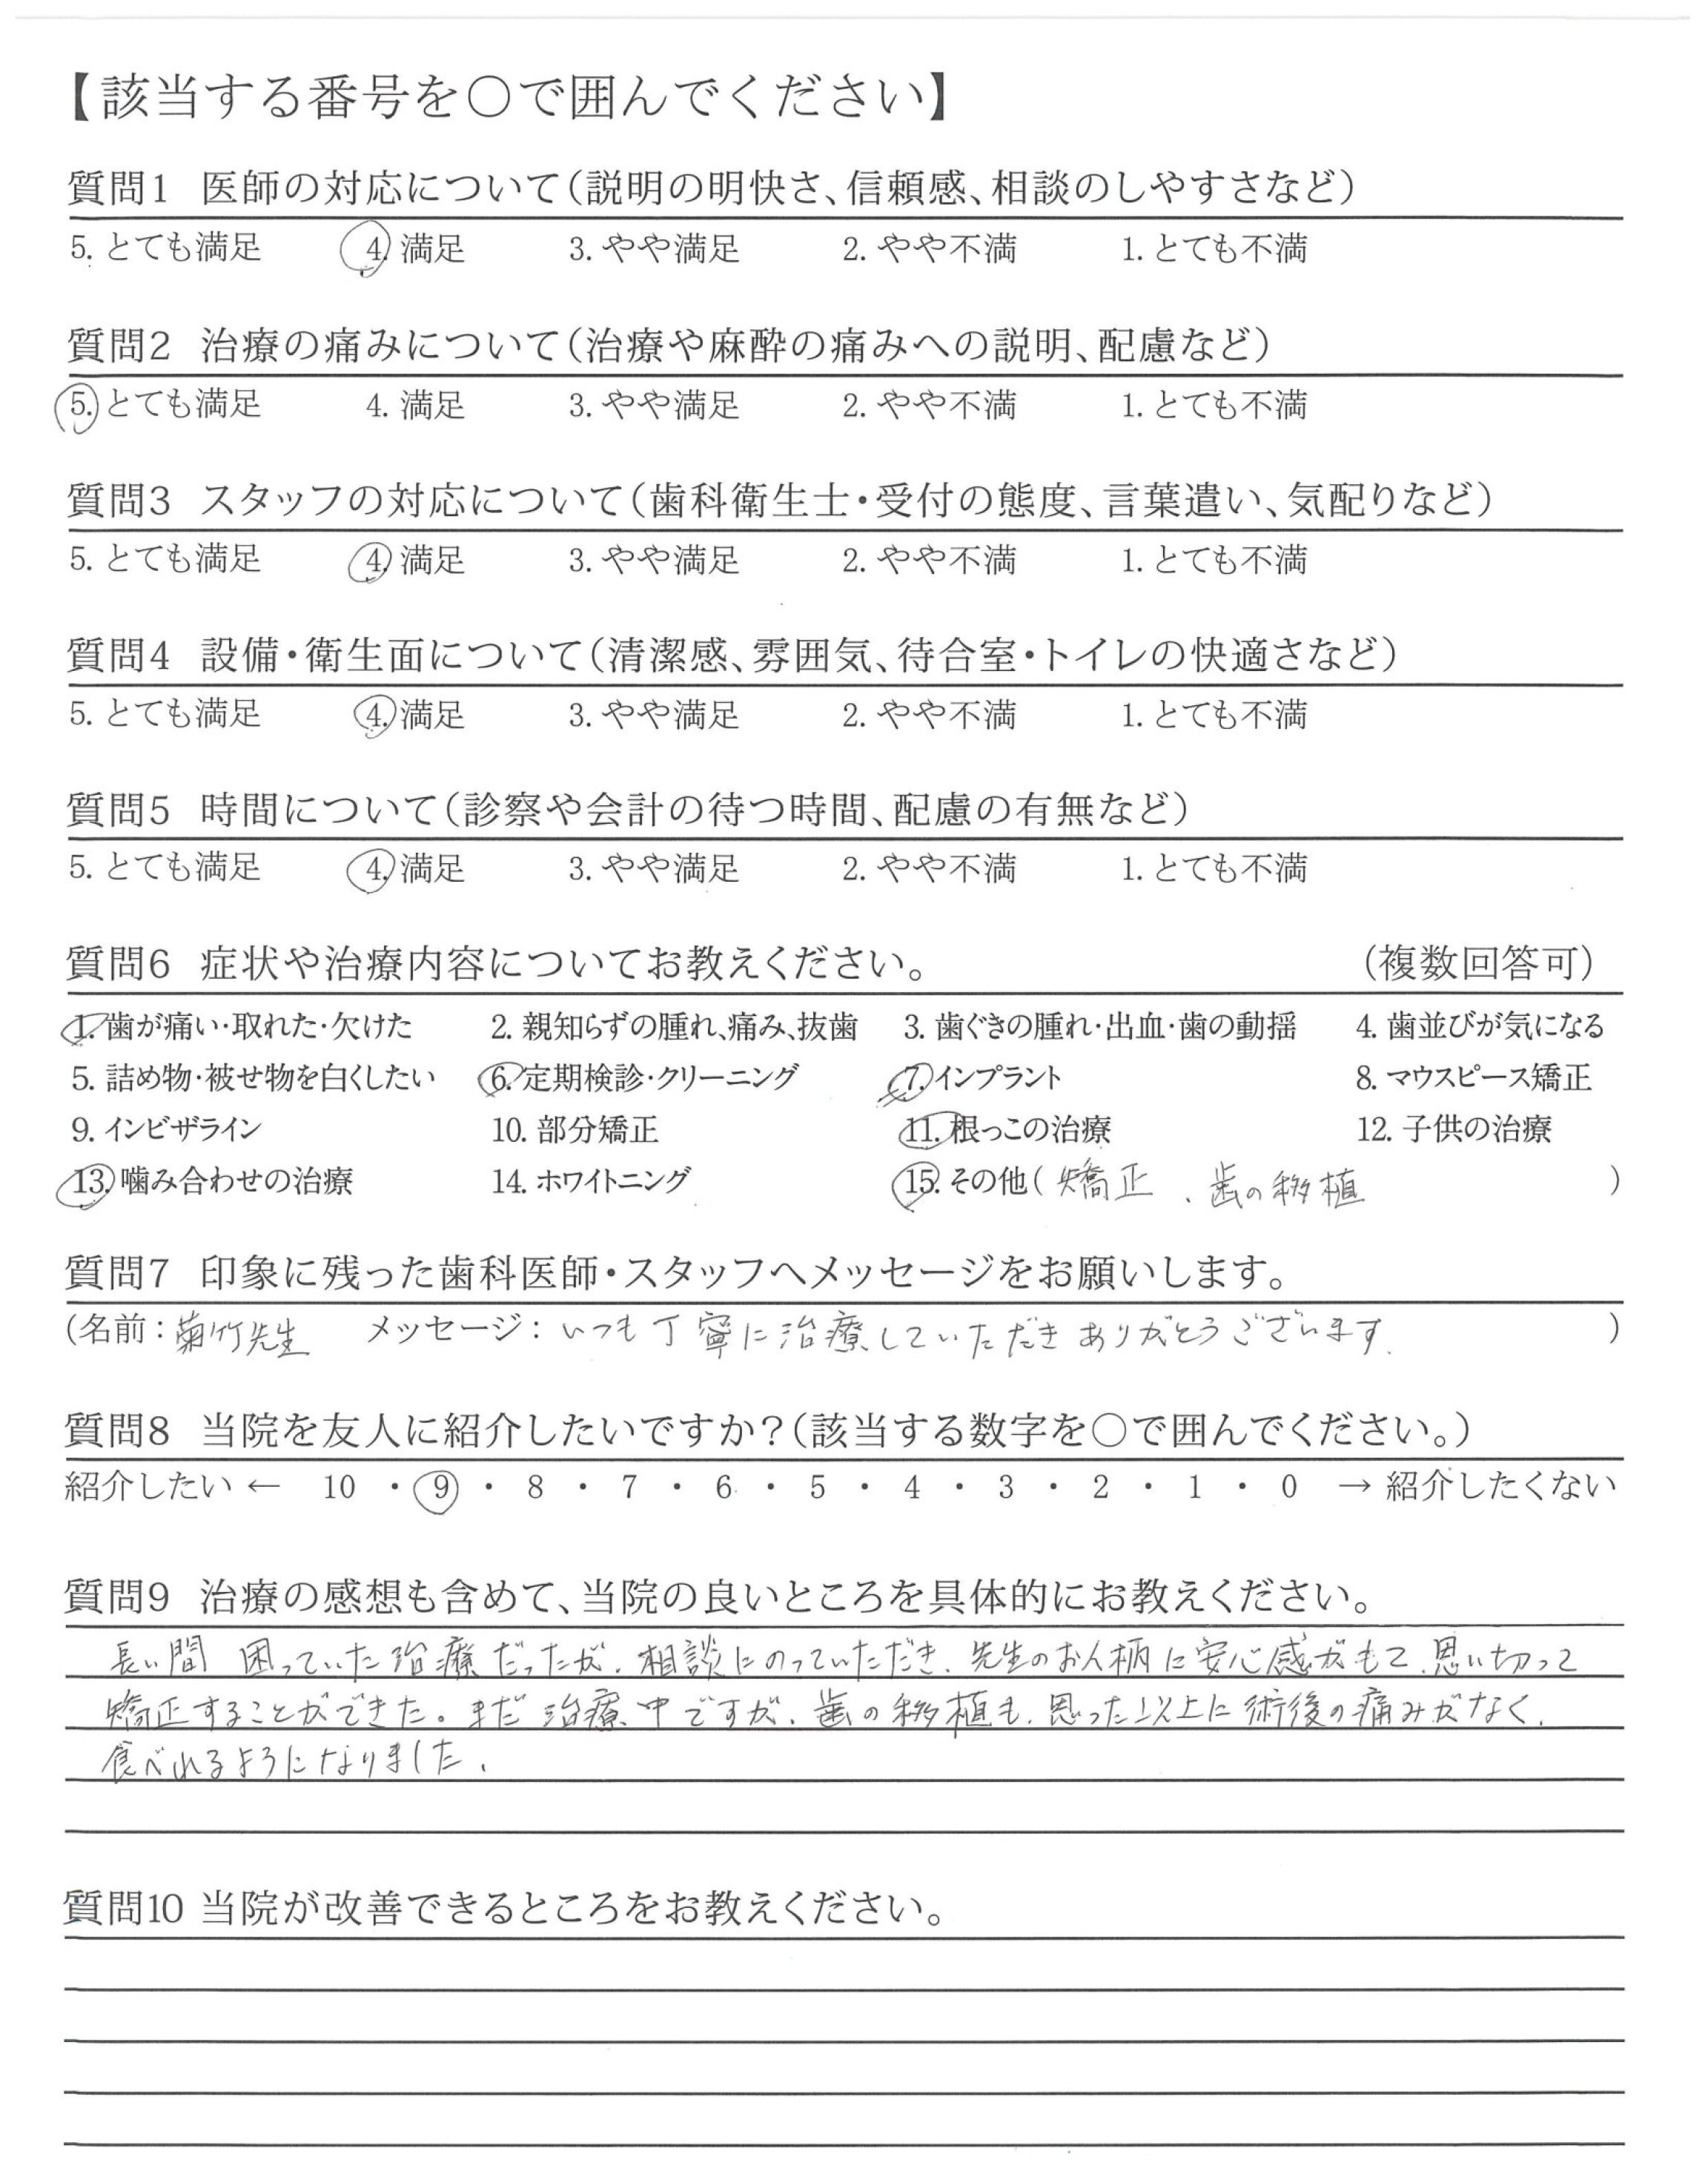 【該当する番号を○で囲んでください】
質問1 医師の対応について(説明の明快さ、信頼感、相談のしやすさなど)
5. とても満足 4. 満足 3. やや満足 2. やや不満 1. とても不満
質問2 治療の痛みについて(治療や麻酔の痛みへの説明、配慮など)
5. とても満足 4. 満足 3. やや満足 2. やや不満 1. とても不満
質問3 スタッフの対応について(歯科衛生士・受付の態度、言葉遣い、気配りなど)
5. とても満足 4. 満足 3. やや満足 2. やや不満 1. とても不満
質問4 設備・衛生面について(清潔感、雰囲気、待合室・トイレの快適さなど)
5. とても満足 4. 満足 3. やや満足 2. やや不満 1. とても不満
質問5 時間について(診察や会計の待つ時間、配慮の有無など)
5. とても満足 4. 満足 3. やや満足 2. やや不満 1. とても不満
質問6 症状や治療内容についてお教えください。 (複数回答可)
1. 歯が痛い・取れた・欠けた 2. 親知らずの腫れ、痛み、抜歯 3. 歯ぐきの腫れ・出血・歯の動揺 4. 歯並びが気になる
5. 詰め物・被せ物を白くしたい 6. 定期検診・クリーニング 7. インプラント 8. マウスピース矯正
9. インビザライン 10. 部分矯正 11. 根っこの治療 12. 子供の治療
13. 噛み合わせの治療 14. ホワイトニング 15. その他( 矯正、歯の移植 )
質問7 印象に残った歯科医師・スタッフへメッセージをお願いします。
(名前:菊竹先生 メッセージ:いつも丁寧に治療していただきありがとうございます. )
質問8 当院を友人に紹介したいですか?(該当する数字を○で囲んでください。)
紹介したい ← 10 ・ 9 ・ 8 ・ 7 ・ 6 ・ 5 ・ 4 ・ 3 ・ 2 ・ 1 ・ 0 → 紹介したくない
質問9 治療の感想も含めて、当院の良いところを具体的にお教えください。
長い間 困っていた治療だったが、相談にのっていただき、先生のお人柄に安心感がもて、思い切って
矯正することができた。まだ治療中ですが、歯の移植も、思った以上に術後の痛みがなく、
食べれるようになりました、
質問10 当院が改善できるところをお教えください。